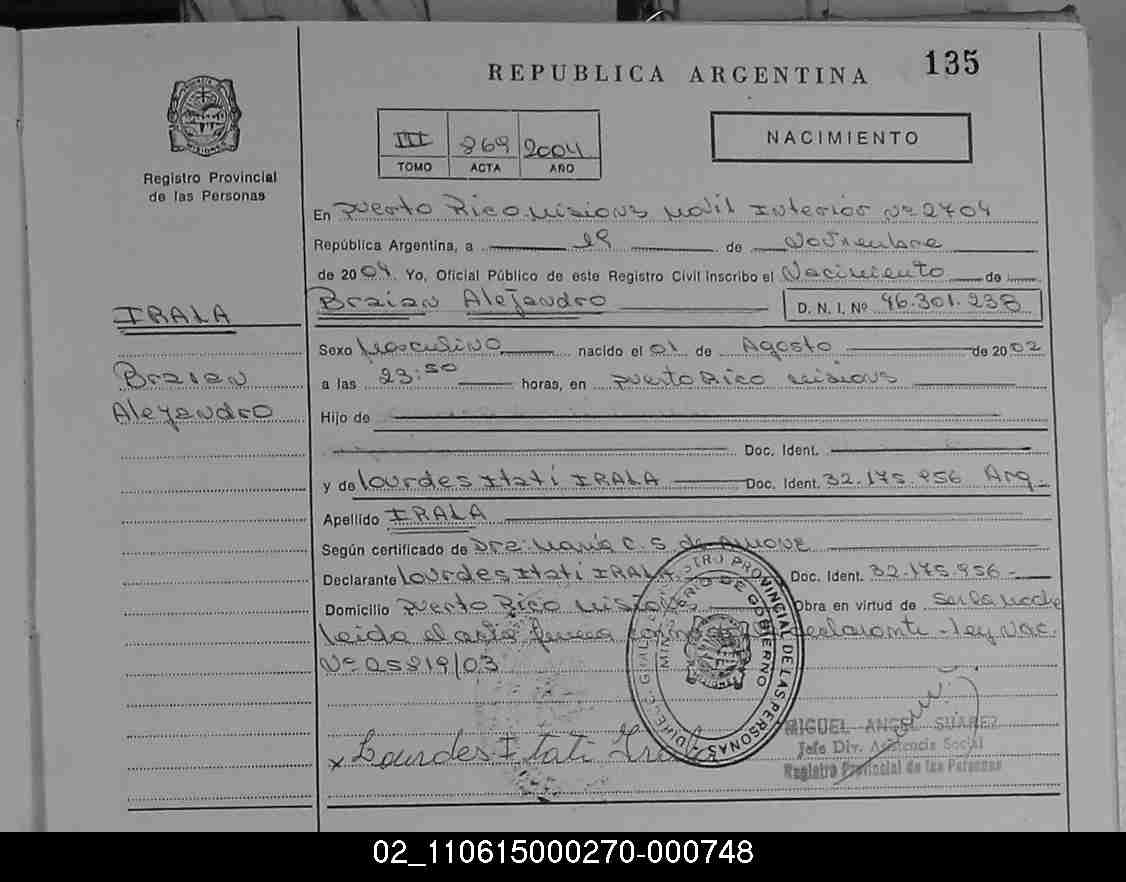 135
REPUBLICA ARGENTINA
Registro Provincial
de las Personas
III 869 2004
TOMO ACTA AÑO
NACIMIENTO
En Puerto Rico Misiones Movil Interior Nº 2704
República Argentina, a 19 de Noviembre
de 2004. Yo, Oficial Público de este Registro Civil inscribo el Nacimiento de
Braian Alejandro D. N. I. Nº 46.301.238
IRALA
Braian
Alejandro
Sexo Masculino nacido el 01 de Agosto de 2002
a las 23:50 horas, en Puerto Rico Misiones
Hijo de
Doc. Ident.
y de Lourdes Itatí IRALA Doc. Ident. 32.175.956 Arg
Apellido IRALA
Según certificado de Dra: María C. S. de
Declarante Lourdes Itatí IRALA Doc. Ident. 32.175.956
Domicilio Puerto Rico Misiones Obra en virtud de Ser la Madre
Leida el acta firma declarante - Ley Nac.
Nº 25819/03
REGISTRO PROVINCIAL DE LAS PERSONAS
MINISTERIO DE GOBIERNO
MISIONES
x Lourdes Itati Irala
MIGUEL ANGEL SUAREZ
Jefe Div. Asistencia Social
Registro Provincial de las Personas
02_110615000270-000748